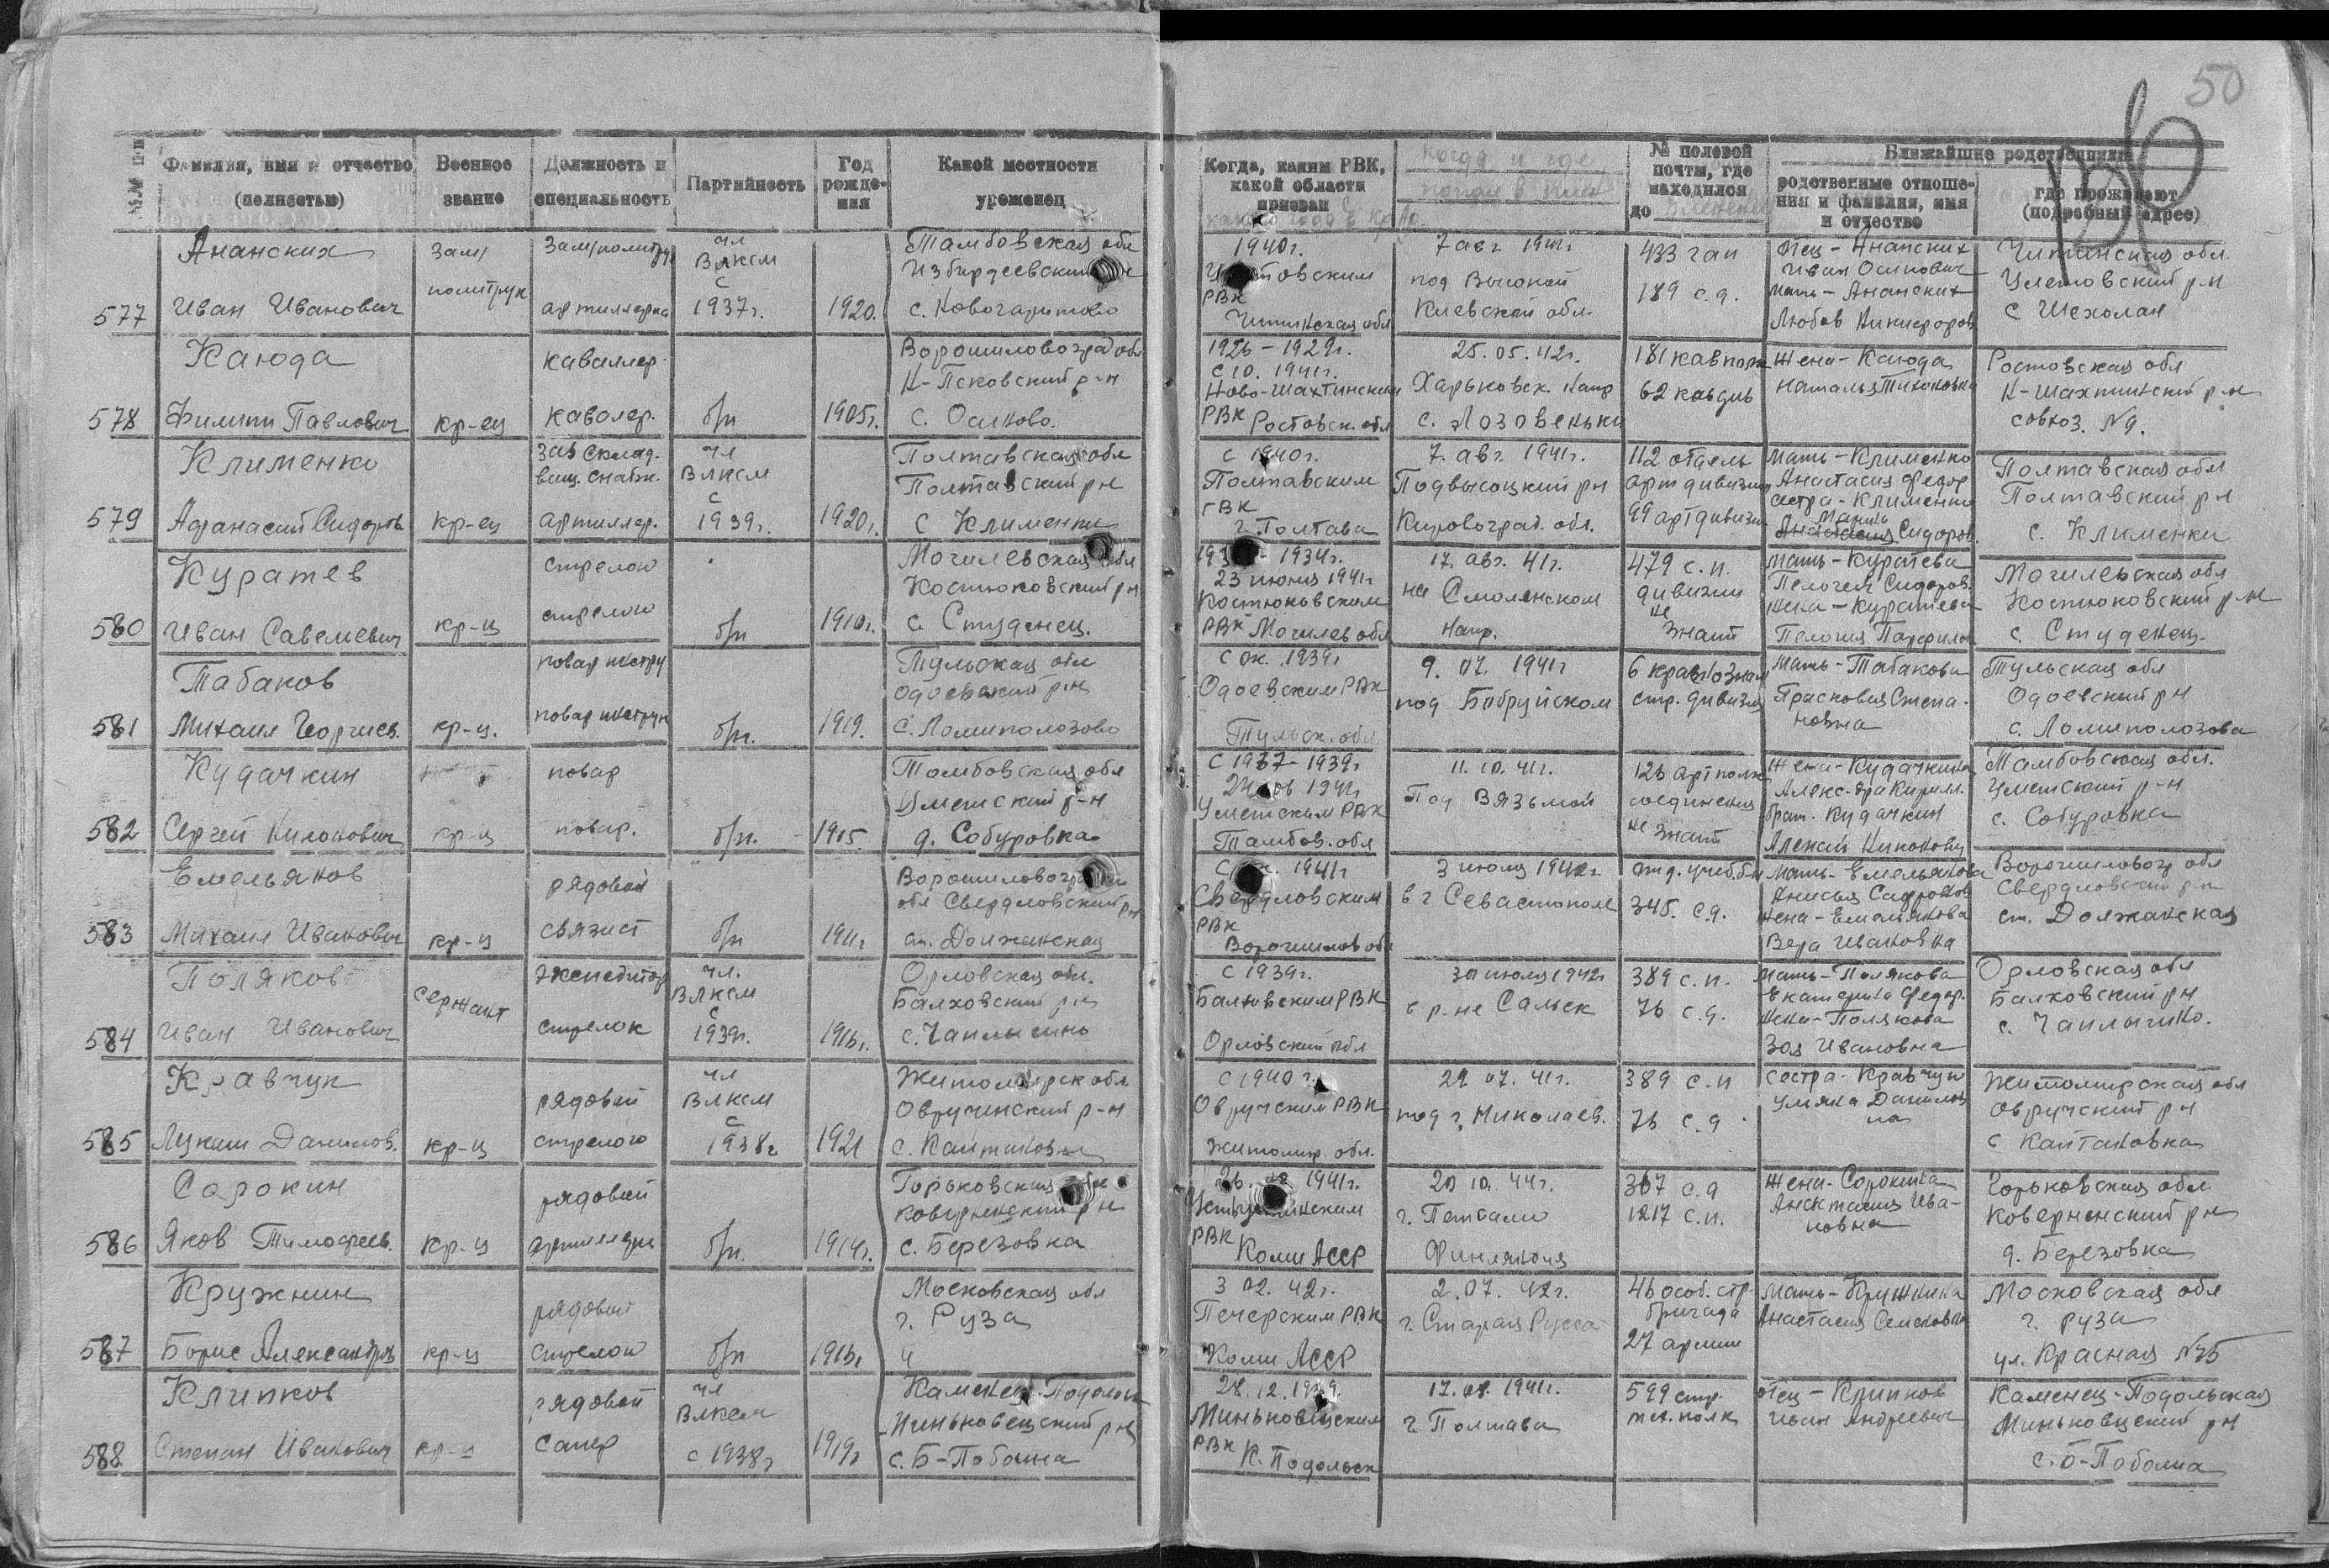 50
№№ п п
Фамилия, имя и отчество (полностью)
Военное звание
Должность и специальность
Партийность
Год рожде-ния
Какой местности уроженец
Когда, каким РВК, какой области призван
когда и где попал в плен
№ полевой почты, где находился до
Ближайшие родственники
родственные отноше-ния и фамилия, имя и отчество
где проживают (подробный адрес)
577 Ананских Иван Иванович
зам/политрук
артиллерия
чл ВЛКСМ с 1937г.
1920.
Тамбовская обл
Избирдеевский
с. Новогаритово
1940г.
РВК Читинская обл
7 авг 1941г.
под Высокой
Киевской обл.
433 гап
189 с.д.
Отец - Ананских Иван Осипович
мать - Ананских
Любов Никифоров
Читинская обл.
Улетовский р-н
578 Каюда Филипп Павлович
кр-ец
каваллер.
кавалер.
б/п
1905г.
Ворошиловоград обл
Н-Псковский р-н
с. Осиново.
1926 - 1929г.
с 10. 1941г.
Ново-Шахтинским
РВК Ростовск. обл
25.05.42г.
Харьковск. напр
с. Лозовеньки
181 кавполк
62 кавдив
Жена - Каюда
Наталья Тихоновна
Ростовская обл
Н-Шахтинский р-н
совхоз. №9.
579 Клименко Афанасий Сидоров
кр-ец
зав склад. вещ. снабж.
артиллер.
чл ВЛКСМ с 1939г.
1920г.
Полтавская обл
Полтавский рн
с Клименки
с 1940г.
Полтавским
ГВК
г. Полтава
7. авг. 1941г.
Подвысоцкий рн
Кировоград. обл.
112 отдель
арт дивизион
99 артдивизи
мать - Клименко
Анастасия Федор
сестра - Клименко
Сидоров.
Полтавская обл
Полтавский рн
с. Клименки
580 Куратев Иван Савельевич
кр-ц
стрелок
стрелок
б/п
1910г.
Могилевская обл
Костюковский рн
с. Студенец.
1934г.
23 июня 1941г
Костюковским
РВК Могилев обл
17. авг. 41г.
на Смоленском
напр.
479 с.п.
дивизии
не знает
мать - Куратева
Сидоров.
жена - Куратева
Могилевская обл
Костюковский р-н
с. Студенец.
581 Табаков Михаил Георгиев.
кр-ц.
повар инстру
б/п.
1919.
Тульская обл
Одоевский рн
с. Ломиполозово
с ок. 1939г
Одоевским РВК
Тульск. обл
9. 07. 1941г
под Бобруйском
6 краснознам
стр. дивизия
Мать - Табакова
Прасковия Степа-
новна
Тульская обл
Одоевский рн
с. Ломиполозова
582 Кудачкин Сергей Кинонович
кр-ц
повар
повар.
б/п.
1915.
Тамбовская обл
Уметский р-н
д. Собуровка
с 1937-1939г
Уметским РВК
Тамбов. обл
11. 10. 41г.
Под Вязьмой
123 артполк
соединения
не знает
Жена - Кудачкина
брат. Кудачкин
Алексей
Тамбовская обл.
Уметский р-н
с. Собуровка
583 Емельянов Михаил Иванович
кр-ц
рядовой
связист
б/п
1911г
обл Свердловский рн
ст. Должанская
1941г
Свердловским
РВК
Ворошилов обл
3 июля 1942г
в г Севастополе
отд. учеб. б-н
345. с.д.
Мать - Емельянова
жена - Емельянова
Вера Ивановна
Ворошиловогр обл
Свердловский рн
ст. Должанская
584 Поляков Иван Иванович
сержант
экспедитор
стрелок
чл. ВЛКСМ с 1939г.
1916г.
Орловская обл.
Балховский рн
с. Чаплыгино
с 1939г.
Балховским РВК
Орловский обл
30 июля 1942г
в р-не Сальск
389 с.п.
76 с.д.
Мать - Полякова
Екатерина Федор.
жена - Полякова
Зоя Ивановна
Орловская обл
Балховский рн
с. Чаплыгино.
585 Кравчук Лукаш Данилов.
кр-ц
рядовой
стрелок
чл ВЛКСМ с 1938г
1921
Житомирск обл
Овручинский р-н
с 1940г.
Овручским РВК
Житомир. обл.
29 07. 41г.
под г. Николаев.
389 с.п
76 с.д.
сестра - Кравчук
Житомирская обл
Овручский рн
586 Сорокин Яков Тимофеев.
кр-ц
рядовой
артиллери
б/п.
1914г.
Горьковская
Ковернинский рн
с. Березовка
1941г.
РВК Коми АССР
20 10. 44г.
г. Петсамо
Финляндия
367 с.д
1217 с.п.
Жена - Сорокина
Анастасия Ива-
новна
Горьковская обл
Ковернинский рн
д. Березовка
587 Кружнин Борис Александров
кр-ц
рядовой
стрелок
б/п
1916г
Московская обл
г. Руза
3 02. 42г.
Печерским РВК
Коми АССР
2. 07. 42г.
г. Старая Русса
46 особ. стр.
бригада
27 армии
Мать - Кружнина
Анастасия Семеновна
Московская обл
г. Руза
ул. Красная
588 Клипков Степан Иванович
кр-ц
рядовой
сапер
чл ВЛКСМ с 1938г
1919г
Каменец-Подольск
Миньковецский рн
28.12.1939.
Миньковецским
РВК К. Подольск
1941г.
г. Полтава
599 стр.
полк
Отец - Клипков
Иван Андреевич
Каменец-Подольская
Миньковецский рн